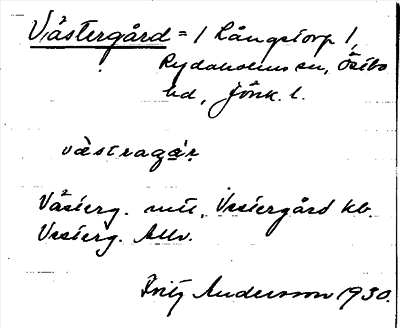 Västergård = 1 Långstorp 1,
Rydaholms sn, Östbo
hd, Jönk. l.
västragár
Västerg. mtl, Vestergård kb.
Vesterg. Allv.
Fritz Andersson 1930.